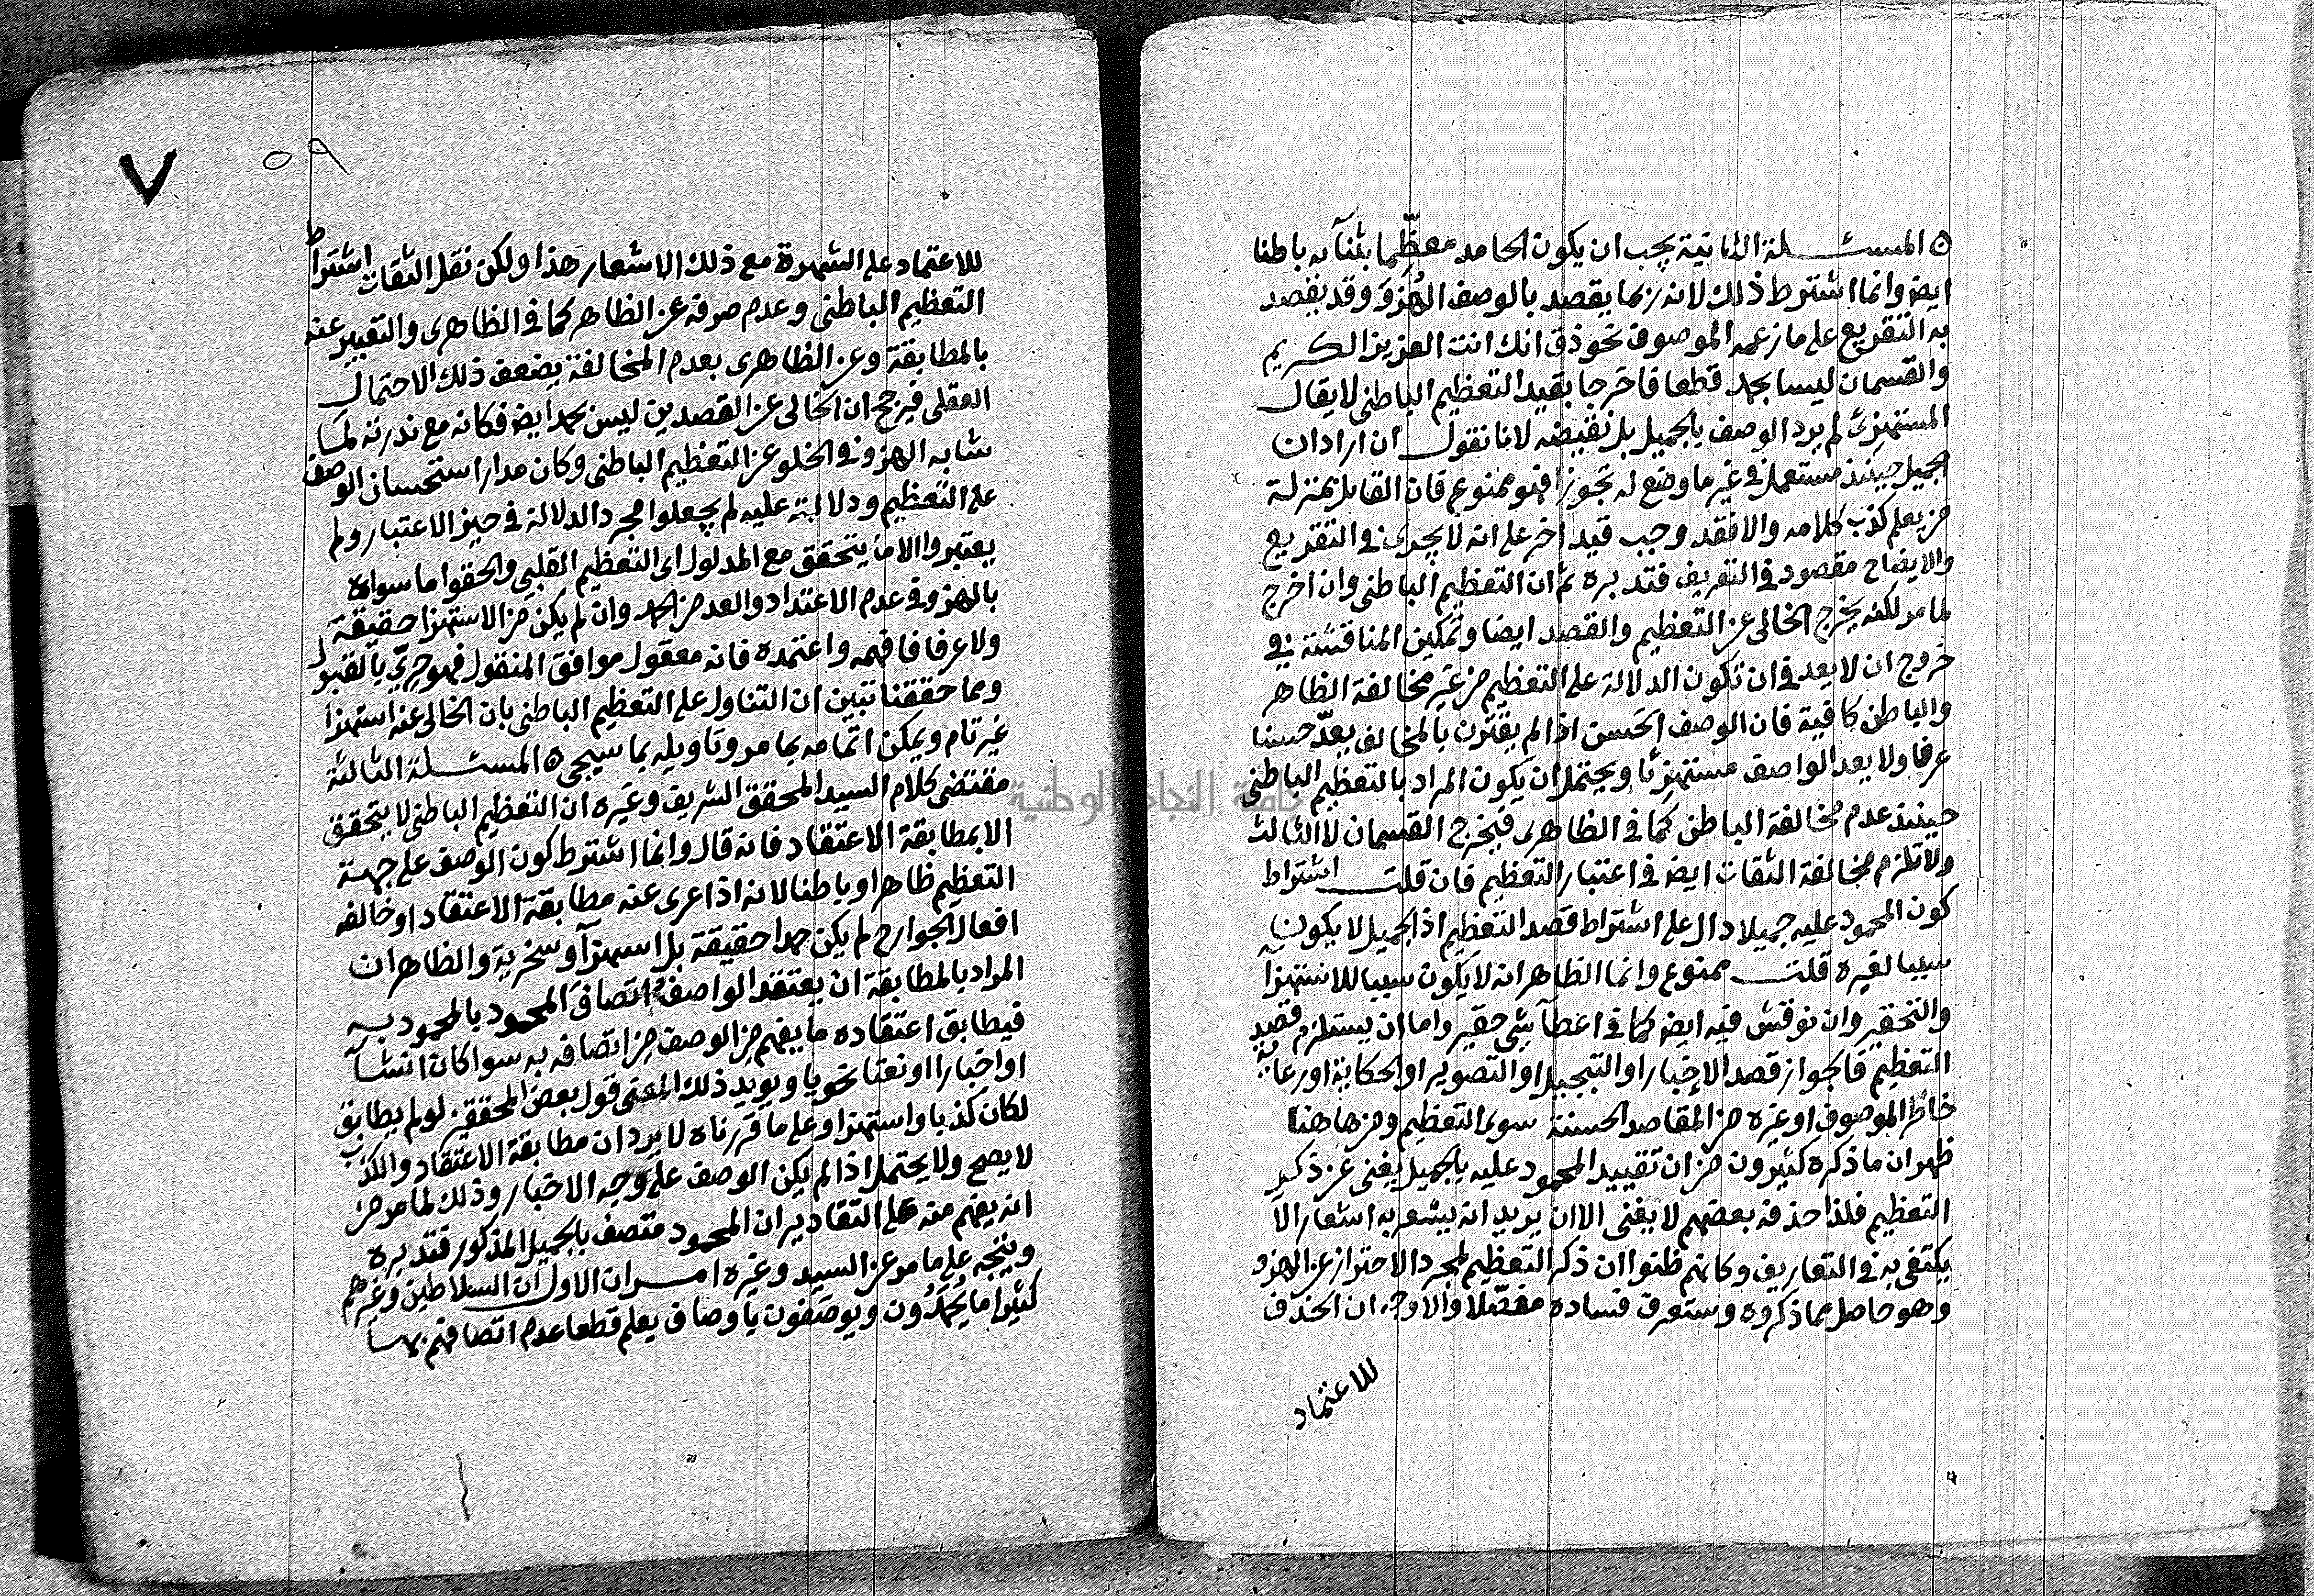 ه المسئلة الثانية يجب ان يكون الحامد معظِّما بثنآئه باطنا
ايضا وانما اشترط ذلك لانه ربما يقصد بالوصف الهُزؤ وقد يقصد
به التقريع على ما زعمه الموصوف نحو ذق انك انت العزيز الكريم
والقسمان ليسا بحمد قطعا فاخرجا بقيد التعظيم الباطنى لا يقال
المستهزئ لم يرد الوصف بالجميل بل نقيضه لانا نقول ان اراد ان
الجميل حينئذ مستعمل فى غير ما وضع له تجوزا فهو ممنوع فان القائل بمنزلة
من يعلم كذب كلامه والا فقد وجب قيد اخر على انه لا يجرى فى التقريع
والايضاح مقصود فى التعريف فتدبره ثم ان التعظيم الباطنى وان اخرج
لما مر لكنه يخرج الخالى عن التعظيم والقصد ايضا ويمكن المناقشة فى
خروج ان لا يعد فى ان تكون الدلالة على التعظيم من غير مخالفة الظاهر
والباطن كافية فان الوصف الحَسن اذا لم يقترن بالمخالف يعدّ حسنا
عرفا ولا يعد الواصف مستهزئا ويحتمل ان يكون المراد بالتعظيم الباطنى
حينئذ عدم مخالفة الباطن كما فى الظاهرى فيخرج القسمان لا الثالث
ولا تلزم مخالفة الثقات ايض فى اعتبار التعظيم فان قلت اشتراط
كون المحمود عليه جميلا دال على اشتراط قصد التعظيم اذ الجميل لا يكون
سببا لغيره قلت ممنوع وانما الظاهر انه لا يكون سببا للاستهزأ
والتحقير وان نوقش فيه ايض كما فى اعطآ شئ حقير واما ان يستلزم قصد
التعظيم فالجواز قصد الاخبار او التبجيل او التصوير او الحكاية او رعاية
خاطر الموصوف او غيره من المقاصد الحسنة سوى التعظيم ومن هاهنا
ظهر ان ما ذكره كثيرون من ان تقييد المحمود عليه بالجميل يغنى عن ذكر
التعظيم فلذا حذفه بعضهم لا يغنى الا ان يريد انه يشعر به اشعارا لا
يكتفى به فى التعاريف وكانهم ظنوا ان ذكر التعظيم لمجرد الاحتراز عن الهزو
وهو حاصل مما ذكروه وستعرف فساده مفصّلا والاوجه ان الحذف
للاعتماد
٧ ٥٩
للاعتماد على الشهرة مع ذلك الاشعار هَذا ولكن نقل الثقات اشتراط
التعظيم الباطنى وعدم صرفه عن الظاهر كما فى الظاهرى والتعبير عنه
بالمطابقة وعن الظاهرى بعدم المخالفة يضعف ذلك الاحتمال
العقلى فيرجح ان الخالى عن القصدين ليس بحمد ايض فكانه مع ندرته لمّا
شابه الهزو فى الخلو عن التعظيم الباطنى وكان مدار استحسان الوصف
على التعظيم ودلالته عليه لم يجعلوا مجرد الدلالة فى حيز الاعتبار ولم
يعتبروا الا ما يتحقق مع المدلول اى التعظيم القلبى والحقوا ما سواه
بالهزو فى عدم الاعتداد والعد من الحمد وان لم يكن من الاستهزا حقيقة
ولا عرفا فافهمه واعتمده فانه معقول موافق المنقول فهو حرىّ بالقبول
ومما حققنا تبين ان التناول على التعظيم الباطنى بان الخالى عنه استهزأ
غير تام ويمكن اتمامه بما مر وتاويله بما سيجئ ه المسئلة الثالثة
مقتضى كلام السيد المحقق الشريف وغيره ان التعظيم الباطنى لا يتحقق
الا بمطابقة الاعتقاد فانه قال وانما اشترط كون الوصف على جهة
التعظيم ظاهرا وباطنا لانه اذا عرى عنه مطابقة الاعتقاد او خالفه
افعال الجوارح لم يكن حمدا حقيقة بل استهزآ وسخرية والظاهر ان
المراد بالمطابقة ان يعتقد الواصف اتصاف المحمود بالمحمود به
فيطابق اعتقاده ما يفهم من الوصف من اتصافه به سوا كان انشآ
او اخبارا او نعتا نحويا ويويد ذلك المعنى قول بعض المحققين لو لم يطابق
لكان كذبا واستهزا وعلى ما قررناه لا يرد ان مطابقة الاعتقاد والكذب
لا يصح ولا يحتمل اذا لم يكن الوصف على وجه الاخبار وذلك لما مر من
انه يفهم منه على التقادير ان المحمود متصف بالجميل المذكور فتدبره
ويتجه على ما مر عن السيد وغيره امران الاول ان السلاطين وغيرهم
كثيرا ما يُحمَدُون ويوصَفون باوصاف يعلم قطعا عدم اتصافهم بها
جامعة النجاح الوطنية